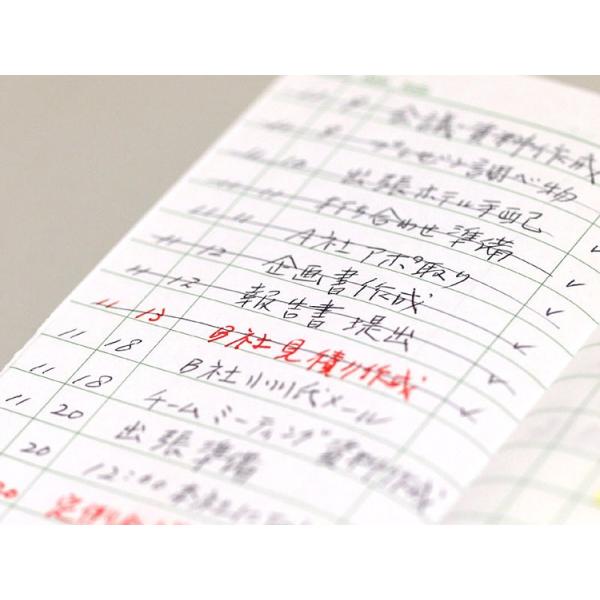 会議資料作成
プレゼント調べ物
11 10 出張ホテル手配
11 11 打ち合わせ準備
11 11 A社アポ取り
11 12 企画書作成
11 12 報告書提出
11 13 B社見積り作成
11 18 B社小川氏メール
11 18 チームミーティング資料作成
11 20 出張準備
20 12:00
20 定例会